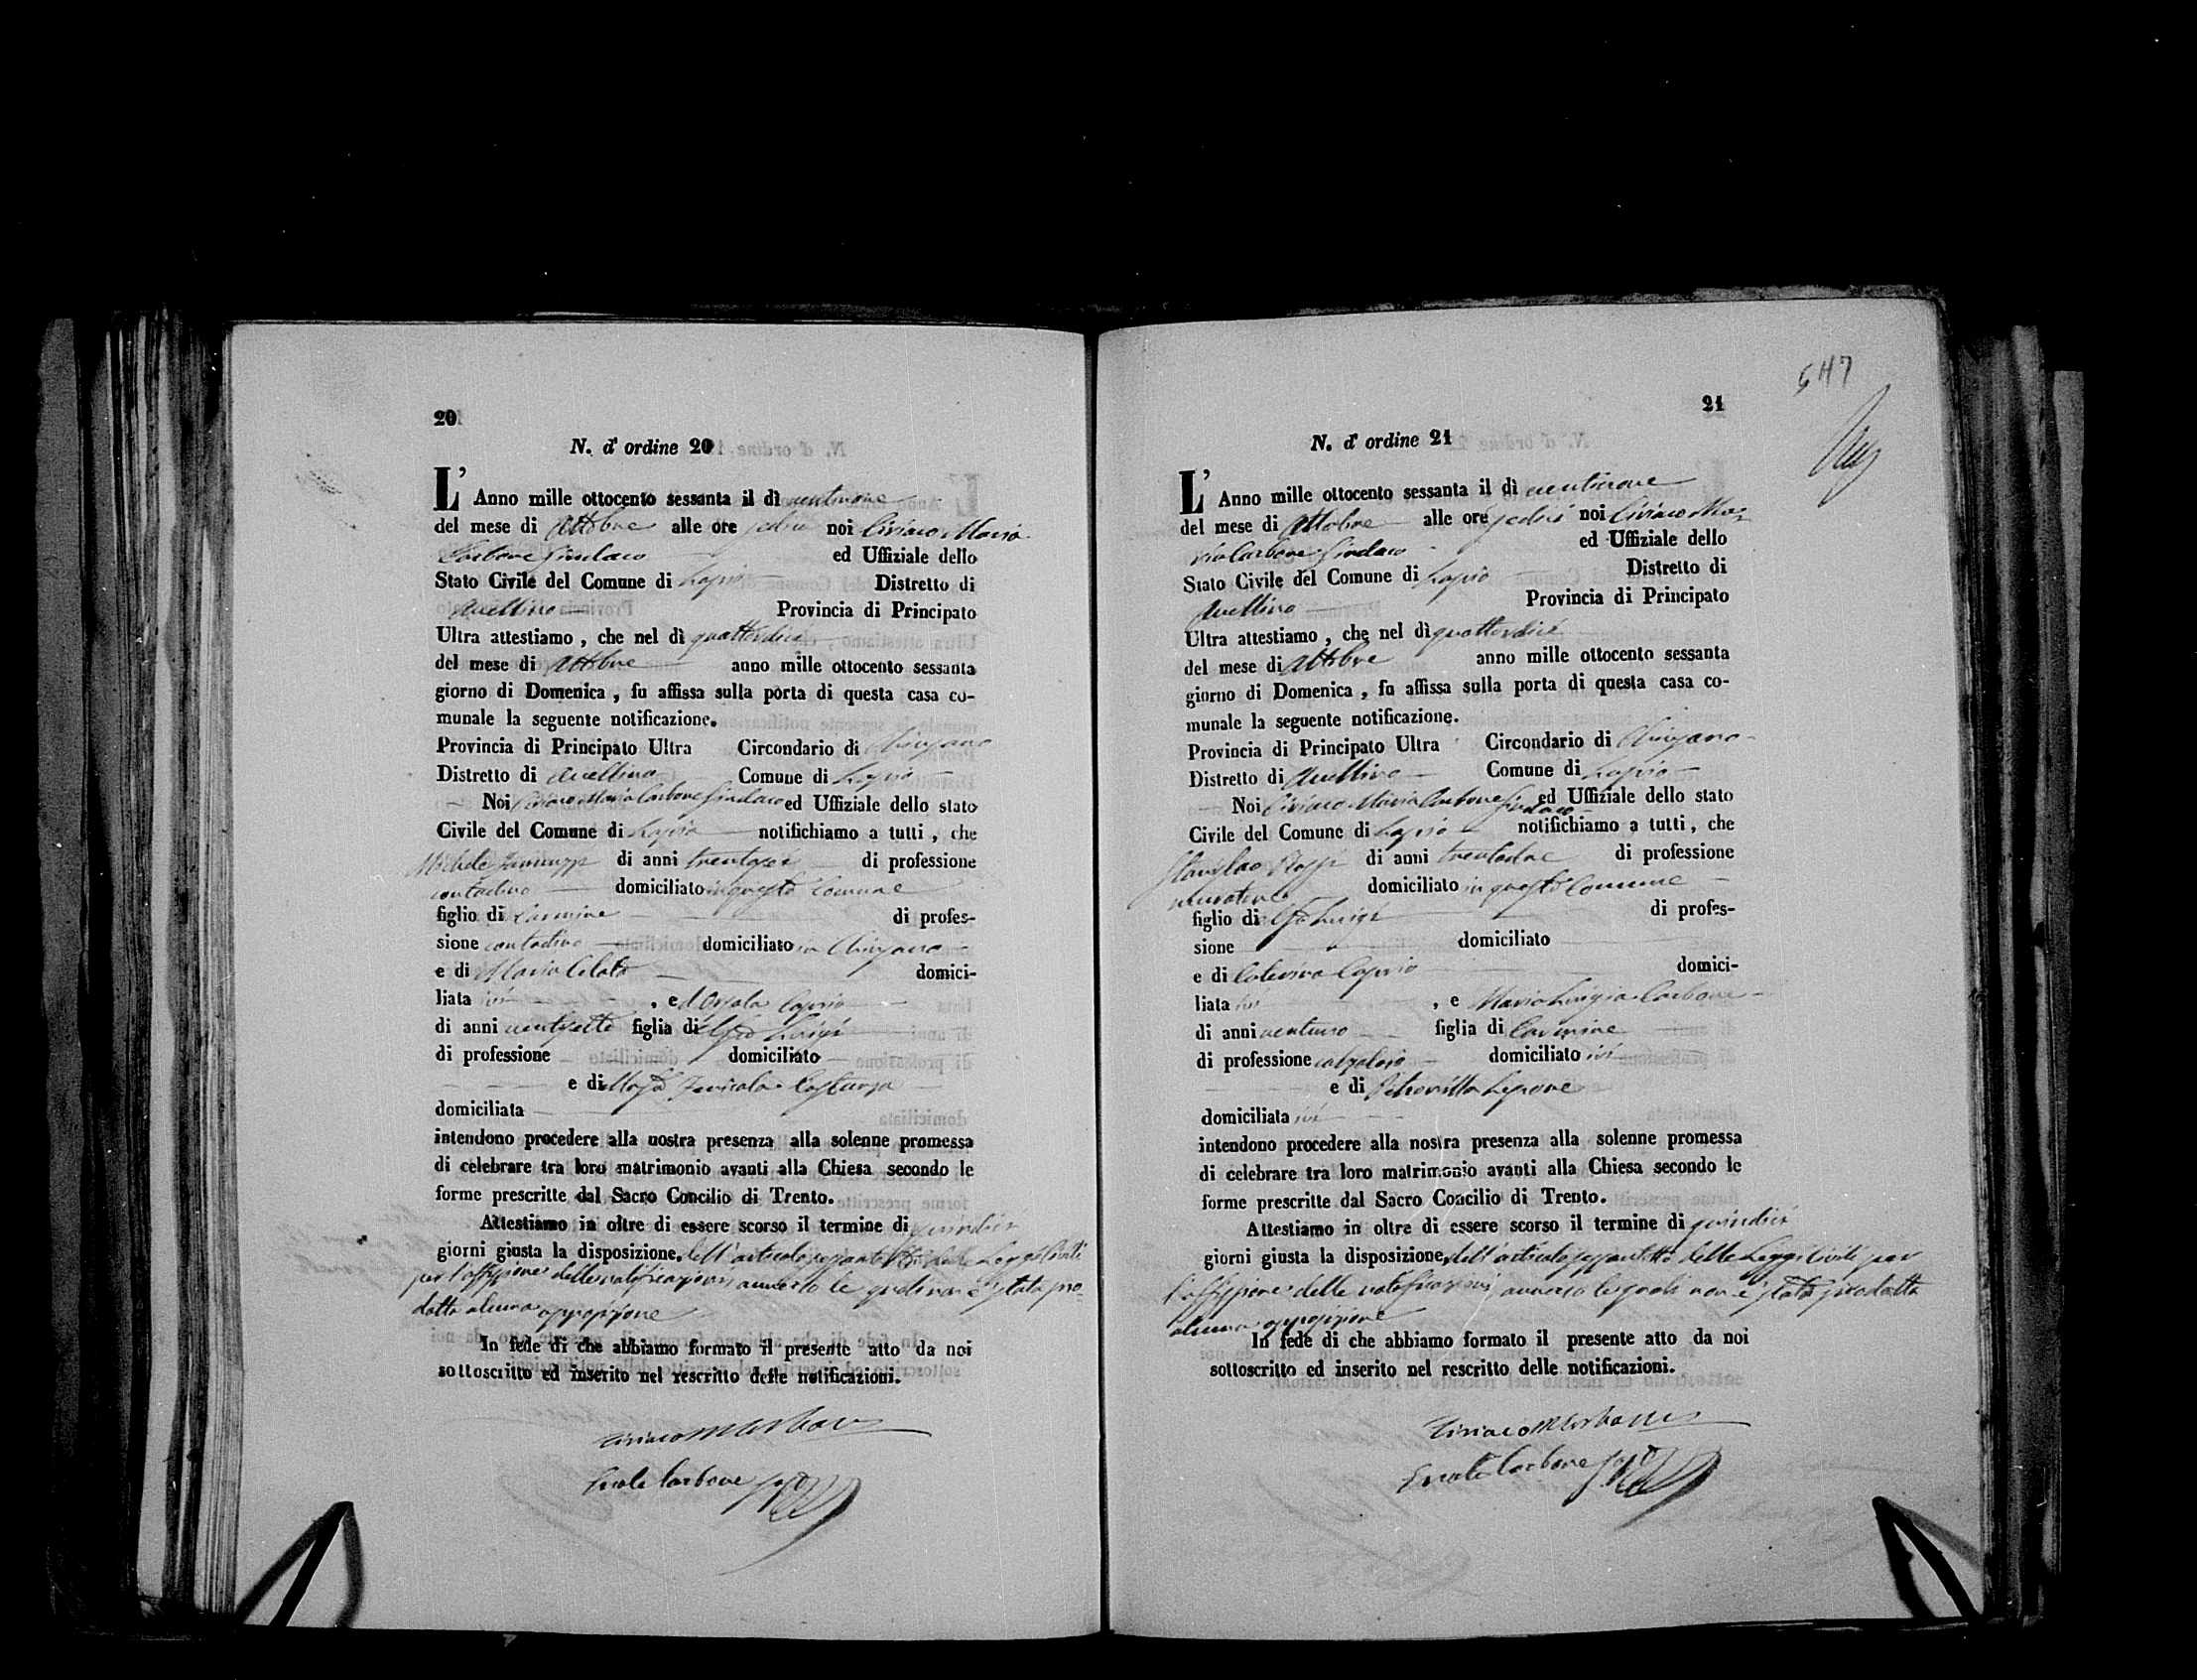 20
N. d' ordine 20
L' Anno mille ottocento sessanta il dì ventinove
del mese di Ottobre alle ore sedici noi Ciriaco Maria
Carbone Sindaco ed Uffiziale dello
Stato Civile del Comune di Lapio Distretto di
Avellino Provincia di Principato
Ultra attestiamo , che nel dì quattordici
del mese di Ottobre anno mille ottocento sessanta
giorno di Domenica , fu affissa sulla porta di questa casa co-
munale la seguente notificazione.
Provincia di Principato Ultra Circondario di Chiusano
Distretto di Avellino Comune di Lapio
Noi Ciriaco Maria Carbone Sindaco ed Uffiziale dello stato
Civile del Comune di Lapio notifichiamo a tutti , che
Michele di anni trentasei di professione
contadino domiciliato in questo Comune
figlio di Carmine di profes-
sione contadino domiciliato in Chiusano
e di Maria domici-
liata ivi , e Caprio
di anni ventisette figlia di Luigi
di professione domiciliato
e di
domiciliata
intendono procedere alla nostra presenza alla solenne promessa
di celebrare tra loro matrimonio avanti alla Chiesa secondo le
forme prescritte dal Sacro Concilio di Trento.
Attestiamo in oltre di essere scorso il termine di quindici
giorni giusta la disposizione dell'articolo sessantotto delle Leggi Civili
per l'affissione delle notificazioni avverso le quali non è stata pro-
dotta alcuna opposizione
In fede di che abbiamo formato il presente atto da noi
sottoscritto ed inserito nel rescritto delle notificazioni.
Ciriaco M Carbone
Carbone
547
21
N. d' ordine 21
L' Anno mille ottocento sessanta il dì ventinove
del mese di Ottobre alle ore sedici noi Ciriaco Ma-
ria Carbone Sindaco ed Uffiziale dello
Stato Civile del Comune di Lapio Distretto di
Avellino Provincia di Principato
Ultra attestiamo , che nel dì quattordici
del mese di Ottobre anno mille ottocento sessanta
giorno di Domenica , fu affissa sulla porta di questa casa co-
munale la seguente notificazione.
Provincia di Principato Ultra Circondario di Chiusano
Distretto di Avellino Comune di Lapio
Noi Ciriaco Maria Carbone Sindaco ed Uffiziale dello stato
Civile del Comune di Lapio notifichiamo a tutti , che
Stanislao Rossi di anni trentadue di professione
muratore domiciliato in questo Comune
figlio di Luigi di profes-
sione domiciliato
e di Caterina Caprio domici-
liata ivi , e Maria Luigia Carbone
di anni ventuno figlia di Carmine
di professione calzolaio domiciliato ivi
e di Petronilla Lepore
domiciliata ivi
intendono procedere alla nostra presenza alla solenne promessa
di celebrare tra loro matrimonio avanti alla Chiesa secondo le
forme prescritte dal Sacro Concilio di Trento.
Attestiamo in oltre di essere scorso il termine di quindici
giorni giusta la disposizione dell'articolo sessantotto delle Leggi Civili per
l'affissione delle notificazioni, avverso le quali non è stata prodotta
alcuna opposizione
In fede di che abbiamo formato il presente atto da noi
sottoscritto ed inserito nel rescritto delle notificazioni.
Ciriaco M Carbone
Carbone